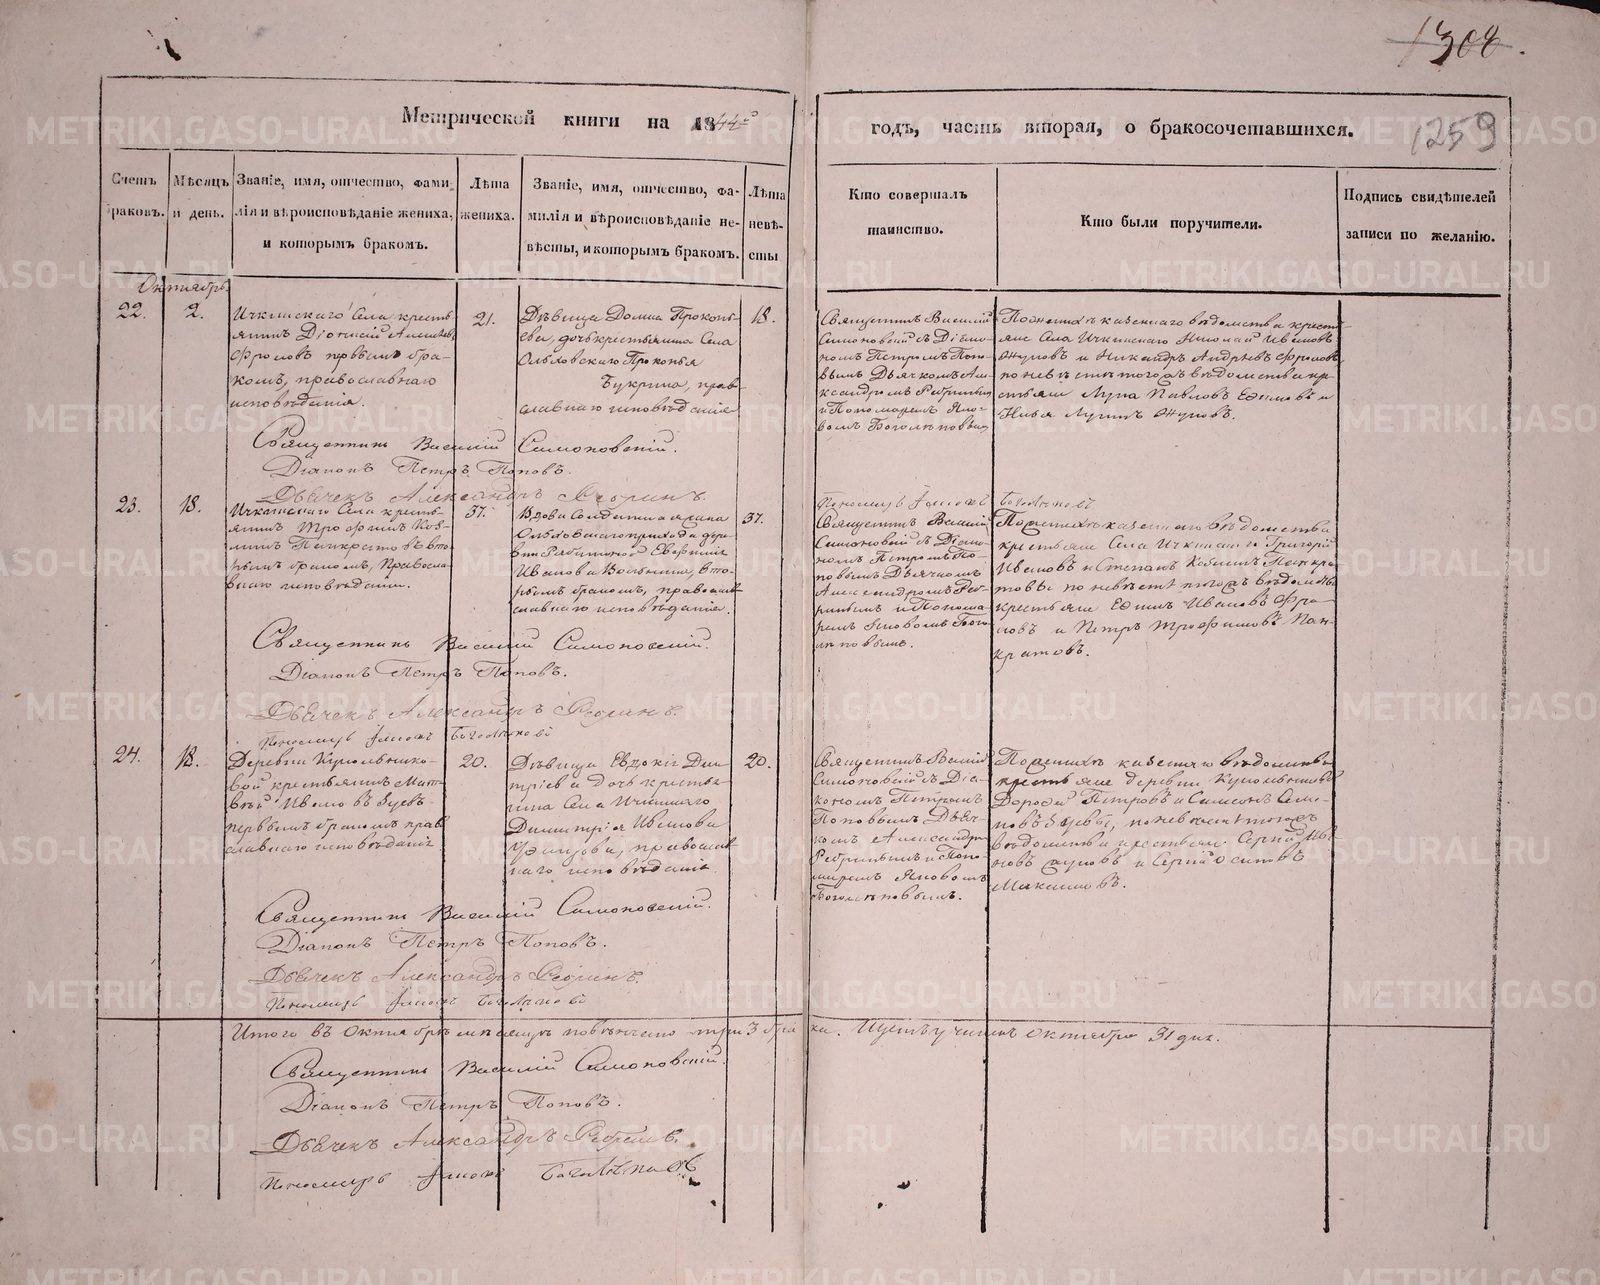 1308.
1259
Метрической книги на 1844й
годъ, часть вторая, о бракосочетавшихся.
Счетъ браковъ.
Мѣсяцъ и день.
Званіе, имя, отчество, фами-
лія и вѣроисповѣданіе жениха,
и которымъ бракомъ.
Лѣта
жениха.
Званіе, имя, отчество, фа-
милія и вѣроисповѣданіе не-
вѣсты, и которымъ бракомъ.
Лѣта
невѣ-
сты
Кто совершалъ
таинство.
Кто были поручители.
Подпись свидѣтелей
записи по желанію.
Октябрь
22.
2.
Ичкинскаго Села кресть
янинъ Діонисій Алексѣевъ
Фроловъ первымъ бра-
комъ, православнаго
исповѣданія.
21.
Дѣвица Домна Прокопь-
ева, дочь крестьянина Села
Ольховскаго Прокопья
Букрина, прав-
славнаго исповѣданія
18.
Священникъ Василій
Симоновскій съ Діако-
номъ Петромъ Попо-
вымъ Дьячкомъ Але-
ксандромъ Ребринымъ
и Пономаремъ Яко-
вомъ Боголѣповымъ
Поженихѣ казеннаго вѣдомства крестья-
яне Села Ичкинскаго Николай Ивановъ
и Никандръ Андреевъ Фроловъ
по невѣстѣ тогожъ вѣдомства кре-
стьяне Лупа Павловъ Ефимовъ и
Священникъ Василій Симоновскій.
Діаконъ Петръ Поповъ.
Дьячекъ Александръ Ребринъ.
Пономарь Іаковъ Боголѣповъ
23.
18.
Ичкинскаго Села кресть-
янинъ Трофимъ Коз-
минъ Панкратовъ вто-
рымъ бракомъ, Правосла-
внаго исповѣданія.
37.
Вдова Солдатка
Ольховскаго прихода дере-
вни Рябининой Евфимія
Иванова, вто-
рымъ бракомъ, право-
славнаго исповѣданія.
37.
Священникъ Василій
Симоновскій съ Діако-
номъ Петромъ По-
повымъ Дьячкомъ
Александромъ Реб-
ринымъ и Понома-
ремъ Яковомъ Бого-
лѣповымъ.
Поженихѣ казеннаго вѣдомства
крестьяне Села Ичкинскаго Григорій
Ивановъ и Степанъ Козминъ Панкра-
товы по невѣстѣ тогожъ вѣдомства
крестьяне Ефимъ Ивановъ Фро-
ловъ и Петръ Трофимовъ Пан-
кратовъ.
Священникъ Василій Симоновскій.
Діаконъ Петръ Поповъ.
Дьячекъ Александръ Ребринъ.
Пономарь Іаковъ Боголѣповъ
24.
18.
Деревни
крестьянинъ Мат-
вѣй Ивановъ Зуевъ
первымъ бракомъ прав
славнаго исповѣданія
20.
Дѣвица Евдокія Дми-
тріева дочь крестья-
нина Села Ичкинскаго
Димитрія Иванова
православ
наго исповѣданія.
20.
Священникъ Василій
Симоновскій съ Діа-
кономъ Петромъ
Поповымъ, Дьяч-
комъ Александромъ
Ребринымъ и Поно-
маремъ Яковомъ
Боголѣповымъ.
Поженихѣ казеннаго вѣдомства
крестьяне деревни
Дорофей Петровъ и Самсонъ Семе-
новъ Зуевы, по невѣстѣ тогожъ
вѣдомства крестьяне Сергій Ива
новъ и Сергій Осиповъ
Максимовъ.
Священникъ Василій Симоновскій.
Діаконъ Петръ Поповъ.
Дьячекъ Александръ Ребринъ.
Пономарь Іаковъ Боголѣповъ
Итого въ Октябрѣ мѣсяцѣ повѣнчано три 3 брака. Октября 31 дня.
Священникъ Василій Симоновскій.
Діаконъ Петръ Поповъ.
Дьячекъ Александръ Ребринъ.
Пономарь Іаковъ Боголѣповъ
METRIKI.GASO-URAL.RU